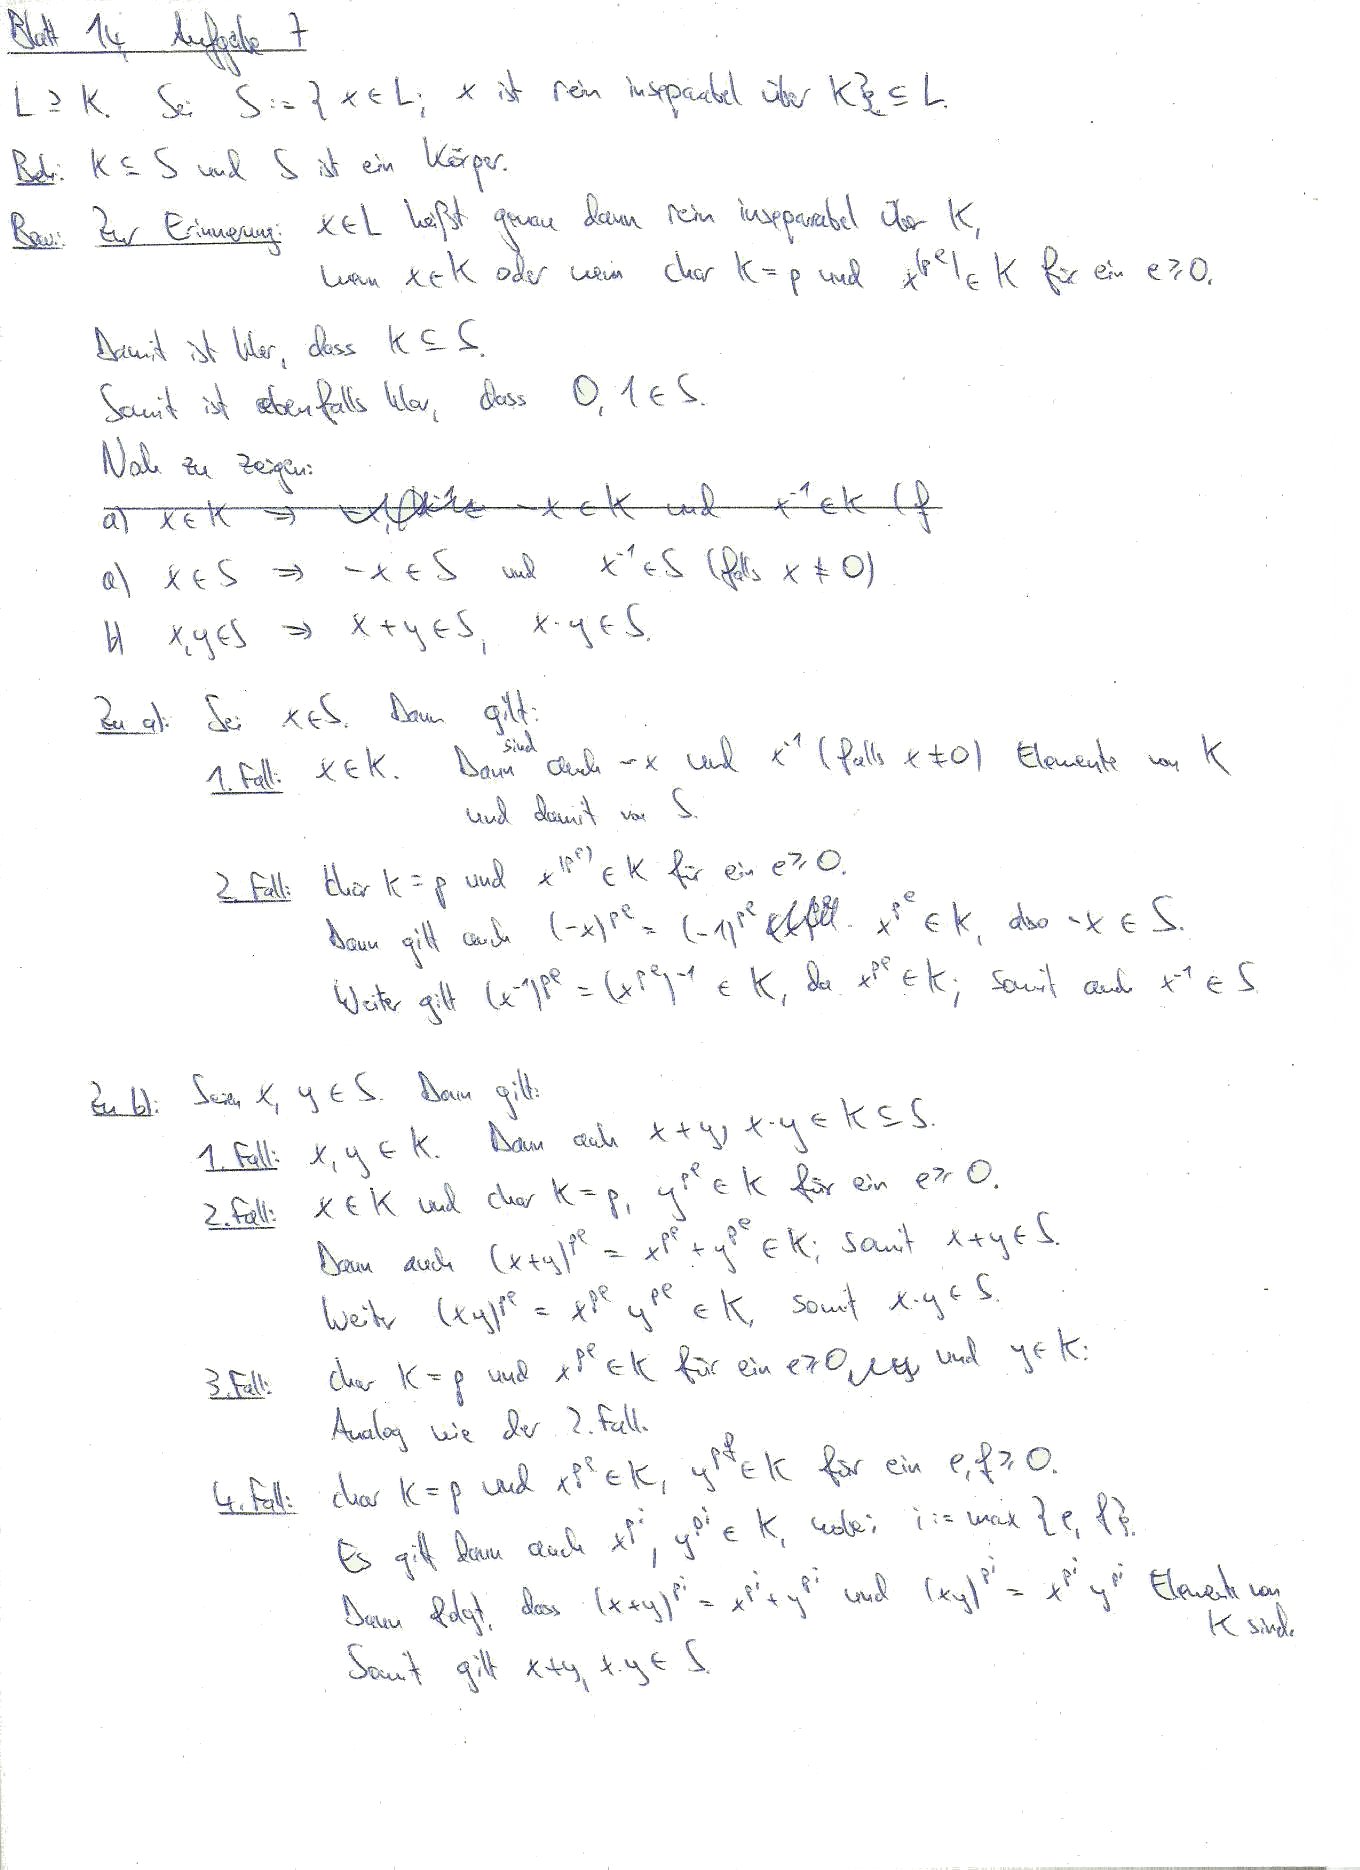 Blatt 14, Aufgabe 7
L ⊇ K. Sei S := { x ∈ L; x ist rein inseparabel über K} ⊆ L.
Beh: K ⊆ S und S ist ein Körper.
Bew: Zur Erinnerung: x ∈ L heißt genau dann rein inseparabel über K,
wenn x ∈ K oder wenn char K = p und x^(p^e) ∈ K für ein e ≥ 0.
Damit ist klar, dass K ⊆ S.
Somit ist ebenfalls klar, dass 0, 1 ∈ S.
Noch zu zeigen:
a) x ∈ K ⇒ -x ∈ K und x^-1 ∈ K (f
a) x ∈ S ⇒ -x ∈ S und x^-1 ∈ S (falls x ≠ 0)
b) x, y ∈ S ⇒ x + y ∈ S, x · y ∈ S.
Zu a): Sei x ∈ S. Dann gilt:
1. Fall: x ∈ K. Dann sind auch -x und x^-1 (falls x ≠ 0) Elemente von K
und damit von S.
2. Fall: char K = p und x^(p^e) ∈ K für ein e ≥ 0.
Dann gilt auch (-x)^p^e = (-1)^p^e · x^p^e ∈ K, also -x ∈ S.
Weiter gilt (x^-1)^p^e = (x^p^e)^-1 ∈ K, da x^p^e ∈ K; somit auch x^-1 ∈ S
Zu b): Seien x, y ∈ S. Dann gilt:
1. Fall: x, y ∈ K. Dann auch x + y, x · y ∈ K ⊆ S.
2. Fall: x ∈ K und char K = p, y^p^e ∈ K für ein e ≥ 0.
Dann auch (x+y)^p^e = x^p^e + y^p^e ∈ K; somit x + y ∈ S.
Weiter (xy)^p^e = x^p^e y^p^e ∈ K, somit x · y ∈ S.
3. Fall: char K = p und x^p^e ∈ K für ein e ≥ 0, und y ∈ K:
Analog wie der 2. Fall.
4. Fall: char K = p und x^p^e ∈ K, y^p^f ∈ K für ein e, f ≥ 0.
Es gilt dann auch x^p^i, y^p^i ∈ K, wobei i := max {e, f}.
Dann folgt, dass (x+y)^p^i = x^p^i + y^p^i und (xy)^p^i = x^p^i y^p^i Elemente von
K sind.
Somit gilt x+y, x·y ∈ S.